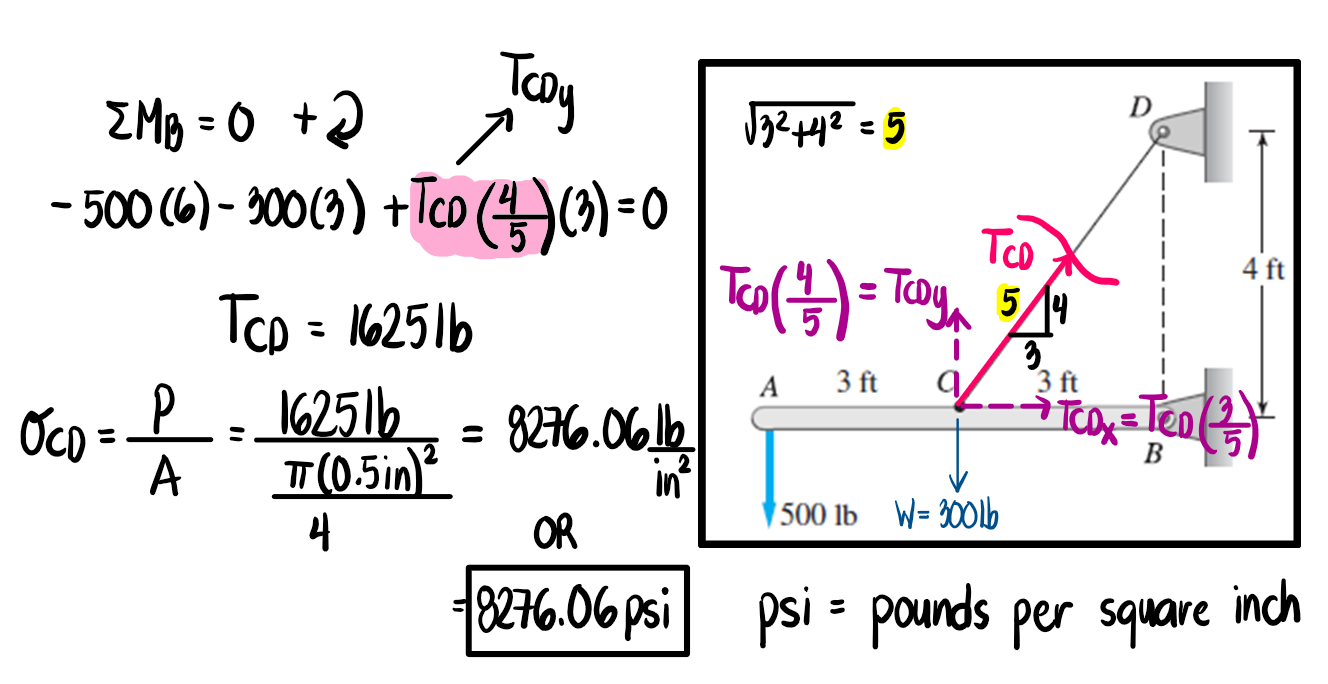 T_CDy
ΣM_B = 0 +↻
-500(6) - 300(3) + T_CD(4/5)(3) = 0
T_CD = 1625 lb
σ_CD = P/A = 1625 lb / (π(0.5in)²/4) = 8276.06 lb/in²
OR
= 8276.06 psi
√3²+4² = 5
D
T_CD
T_CD(4/5) = T_CDy
5
4
3
4 ft
A
3 ft
C
3 ft
T_CDx = T_CD(3/5)
B
500 lb
W = 300 lb
psi = pounds per square inch